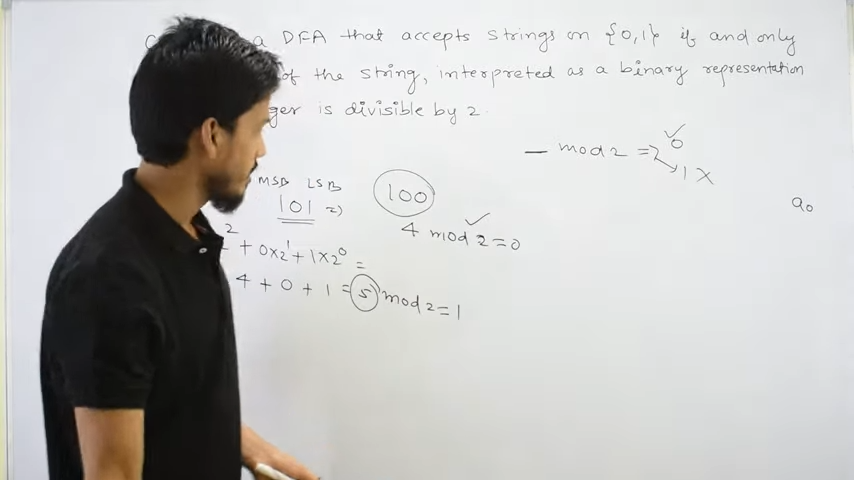 a DFA that accepts strings on {0,1} if and only
of the string, interpreted as a binary representation
ger is divisible by 2.
— mod 2 = 0 ✓
1 X
MSB LSB
101 ⇒
100
4 mod 2 = 0 ✓
a₀
2² + 0×2¹ + 1×2⁰ =
4 + 0 + 1 = 5 mod 2 = 1